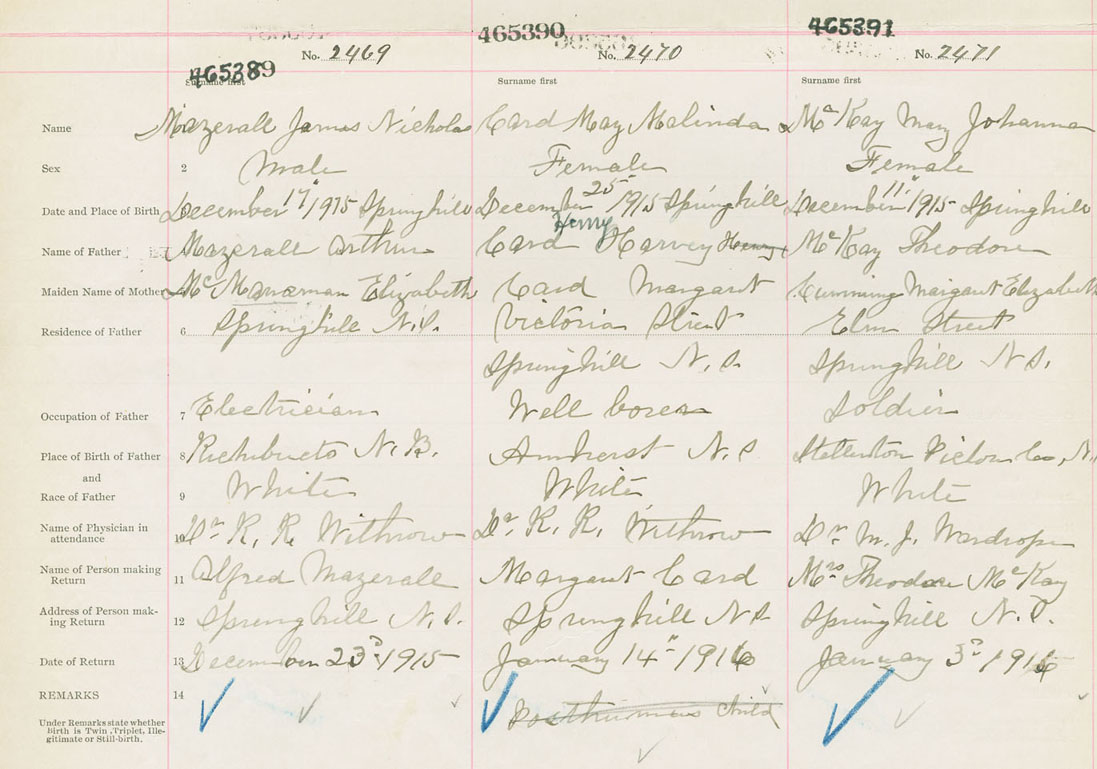 465390 465391
No. 2469 No. 2470 No. 2471
465389
Surname first Surname first Surname first
Name Mazerall James Nicholas Card May Malinda McKay Mary Johanna
Sex 2 Male Female Female
Date and Place of Birth December 17" 1915 Springhill December 25" 1915 Springhill December 11" 1915 Springhill
Henry
Name of Father Mazerall Arthur Card Harvey Henry McKay Theodore
Maiden Name of Mother Elizabeth Card Margaret Cumming Margaret Elizabeth
Residence of Father 6 Springhill N.S. Victoria Street Elm Street
Springhill N.S. Springhill N S.
Occupation of Father 7 Electrician Well borer Soldier
Place of Birth of Father 8 Richibucto N.B. Amherst N.S Stellarton Pictou Co, N.
and
Race of Father 9 White White White
Name of Physician in
attendance 10 Dr R. R. Withrow Dr R. R. Withrow Dr M. J. Wardrope
Name of Person making
Return 11 Alfred Mazerall Margaret Card Mrs Theodore McKay
Address of Person mak-
ing Return 12 Springhill N.S. Springhill N S Springhill N.S.
Date of Return 13 December 23d 1915 January 14" 1916 January 3d 1916
REMARKS 14
Posthumous Child
Under Remarks state whether
Birth is Twin, Triplet, Ille-
gitimate or Still-birth.